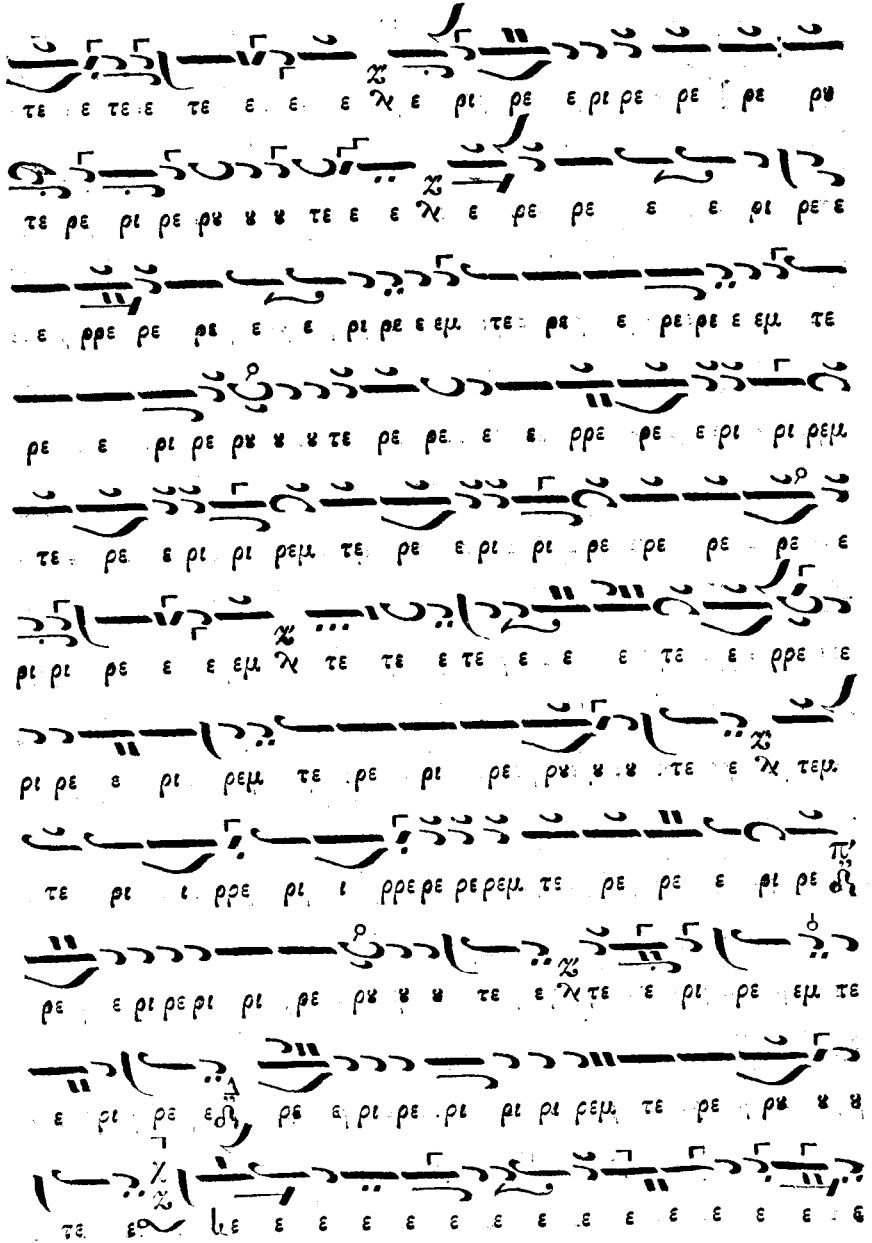 τε ε τε ε τε ε ε ε ε ρι ρε ε ρι ρε ρε ρε ρȣ
τε ρε ρι ρε ρȣ ȣ ȣ τε ε ε ε ρε ρε ε ε ρι ρε ε
ε ρρε ρε ρε ε ε ρι ρε ε εμ τε ρε ε ρε ρε ε εμ τε
ρε ε ρι ρε ρȣ ȣ ȣ τε ρε ρε ε ε ρρε ρε ε ρι ρι ρεμ
τε ρε ε ρι ρι ρεμ τε ρε ε ρι ρι ρε ρε ρε ρε ε
ρι ρι ρε ε ε εμ τε τε ε τε ε ε ε τε ε ρρε ε
ρι ρε ε ρι ρεμ τε ρε ρι ρε ρȣ ȣ ȣ τε ε τεμ
τε ρι ι ρρε ρι ι ρρε ρε ρε ρεμ τε ρε ρε ε ρι ρε
ρε ε ρι ρε ρι ρι ρε ρȣ ȣ ȣ τε ε τε ε ρι ρε εμ τε
ε ρι ρε ε ρε ε ρι ρε ρι ρι ρι ρεμ τε ρε ρȣ ȣ ȣ
τε ε ε ε ε ε ε ε ε ε ε ε ε ε ε ε ε